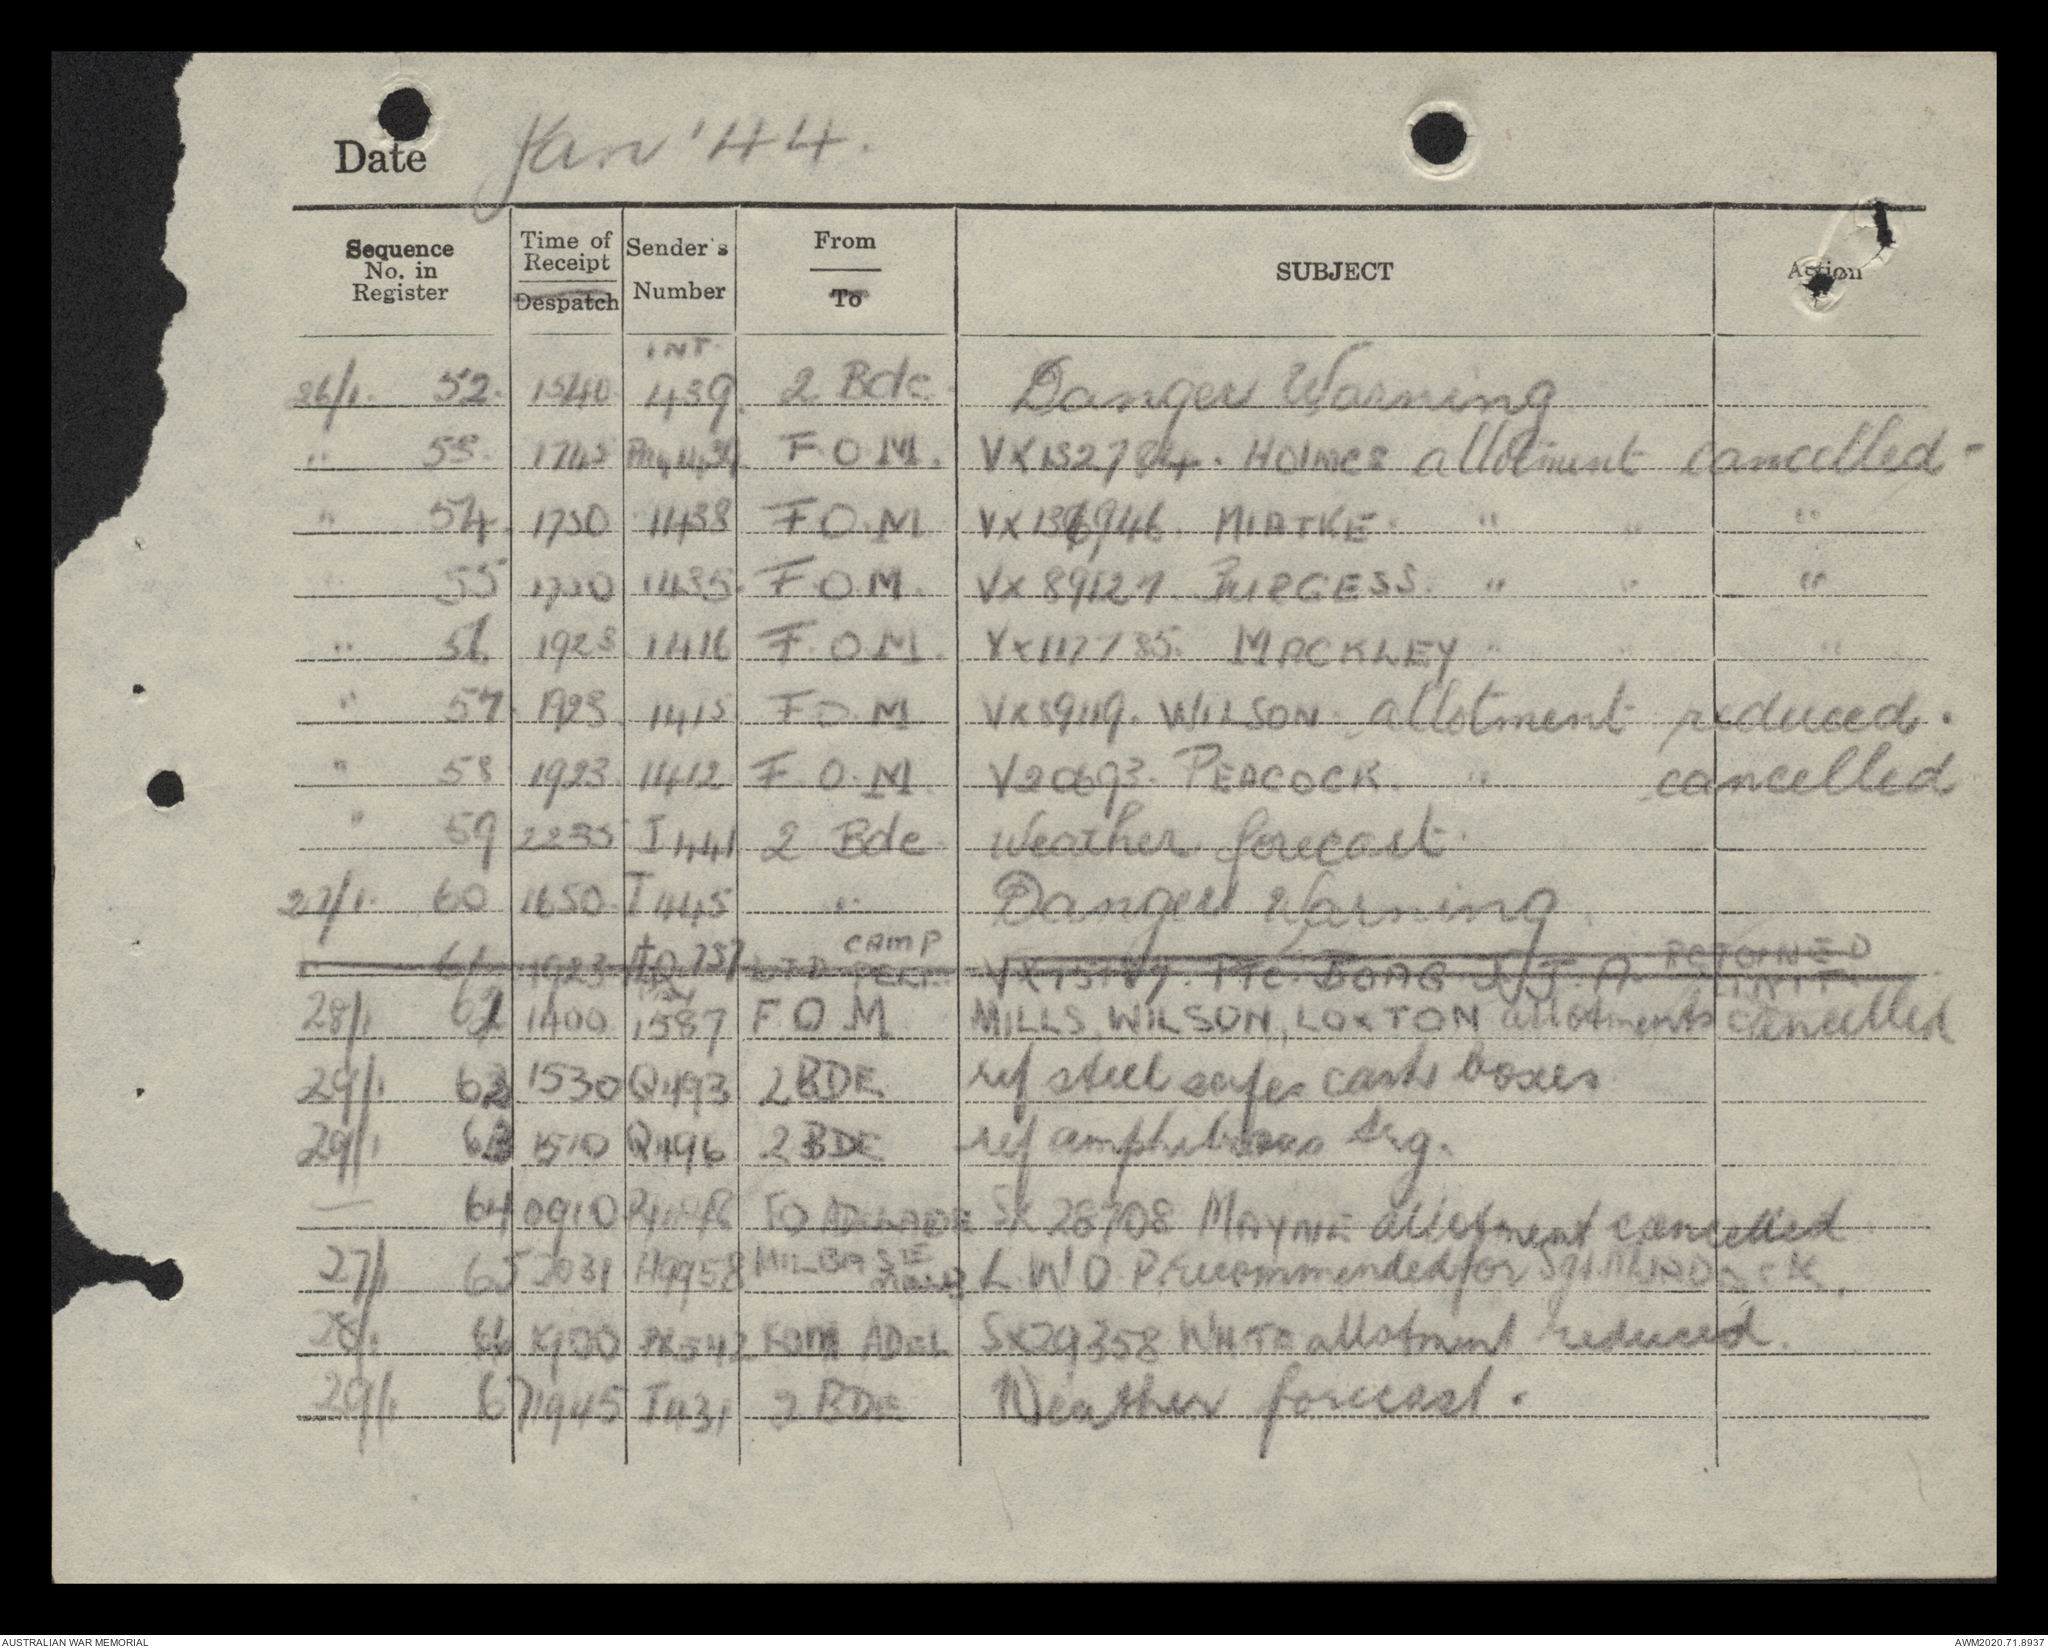 Date Jan '44.
Sequence No. in Register
Time of Receipt
Despatch
Sender's Number
From
To
SUBJECT
Action
INT.
26/1. 52. 1540. 1439. 2 Bde. Danger Warning
" 53. 1745 F.O.M. VX132784. HOLMES allotment cancelled -
" 54. 1750 11438 F.O.M VX136946. MIATKE. " " "
55 11435. F.O.M. VX89127. BURGESS. " " "
" 56. 1923 11416 F.O.M. VX117785. MACKLEY " " "
" 57. 1923. 11415 F.O.M WILSON. allotment reduced.
" 58 1923. 11412 F.O.M. V20693. PEACOCK. " cancelled
" 59 2235 I 441 2 Bde. Weather forecast.
27/1. 60 1650. I 445 " Danger Warning.
CAMP
61 1923 AQ 757 L.T.D. PELL. Pte. BOAG J.J.A. REJOINED UNIT.
28/1 61 1400 11587 F O M MILLS, WILSON, LOXTON allotments cancelled
29/1 62 1530 Q493 2 BDE ref steel safes cash boxes
29/1 63 1510 Q496 2 BDE ref amphibious trg.
— 64 0910 FO ADELAIDE SX 28708 MAYNE allotment cancelled
27/1 65 2031 H9958 MILBASE MELB L.W.O.P. recommended for Sgt.
28/1. 66 1900 FOM ADEL SX29358 WHITE allotment reduced.
29/1 67 1945 I 431 2 BDE Weather forecast.
AUSTRALIAN WAR MEMORIAL
AWM2020.71.8937